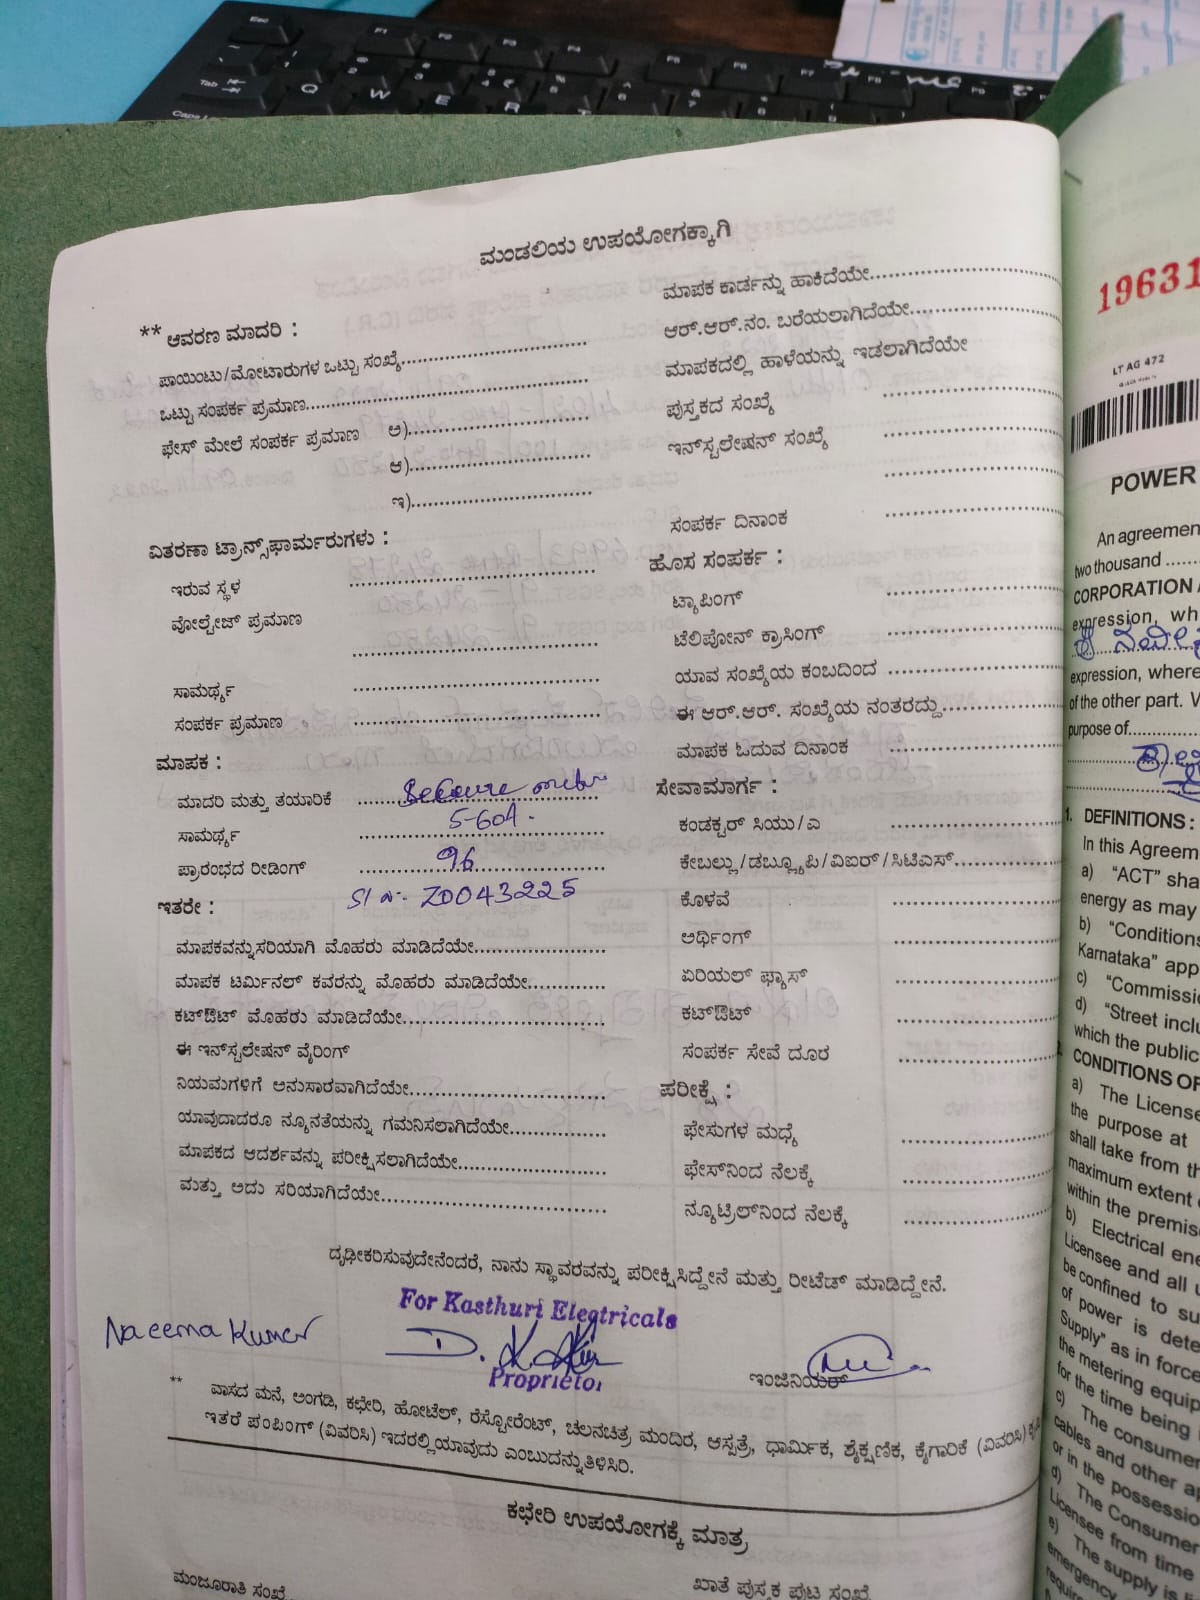 ಮಂಡಲಿಯ ಉಪಯೋಗಕ್ಕಾಗಿ
** ಆವರಣ ಮಾದರಿ :
ಪಾಯಿಂಟು/ಮೋಟಾರುಗಳ ಒಟ್ಟು ಸಂಖ್ಯೆ
ಒಟ್ಟು ಸಂಪರ್ಕ ಪ್ರಮಾಣ
ಫೇಸ್ ಮೇಲೆ ಸಂಪರ್ಕ ಪ್ರಮಾಣ ಅ)
ಆ)
ಇ)
ವಿತರಣಾ ಟ್ರಾನ್ಸ್‌ಫಾರ್ಮರುಗಳು :
ಇರುವ ಸ್ಥಳ
ವೋಲ್ಟೇಜ್ ಪ್ರಮಾಣ
ಸಾಮರ್ಥ್ಯ
ಸಂಪರ್ಕ ಪ್ರಮಾಣ
ಮಾಪಕ :
ಮಾದರಿ ಮತ್ತು ತಯಾರಿಕೆ Secure
ಸಾಮರ್ಥ್ಯ 5-60A.
ಪ್ರಾರಂಭದ ರೀಡಿಂಗ್ 96
Sl No. ZD043225
ಇತರೇ :
ಮಾಪಕವನ್ನು ಸರಿಯಾಗಿ ಮೊಹರು ಮಾಡಿದೆಯೇ
ಮಾಪಕ ಟರ್ಮಿನಲ್ ಕವರನ್ನು ಮೊಹರು ಮಾಡಿದೆಯೇ
ಕಟ್‌ಔಟ್ ಮೊಹರು ಮಾಡಿದೆಯೇ
ಈ ಇನ್‌ಸ್ಟಲೇಷನ್ ವೈರಿಂಗ್
ನಿಯಮಗಳಿಗೆ ಅನುಸಾರವಾಗಿದೆಯೇ
ಯಾವುದಾದರೂ ನ್ಯೂನತೆಯನ್ನು ಗಮನಿಸಲಾಗಿದೆಯೇ
ಮಾಪಕದ ಆದರ್ಶವನ್ನು ಪರೀಕ್ಷಿಸಲಾಗಿದೆಯೇ
ಮತ್ತು ಅದು ಸರಿಯಾಗಿದೆಯೇ
ಮಾಪಕ ಕಾರ್ಡನ್ನು ಹಾಕಿದೆಯೇ
ಆರ್.ಆರ್.ನಂ. ಬರೆಯಲಾಗಿದೆಯೇ
ಮಾಪಕದಲ್ಲಿ ಹಾಳೆಯನ್ನು ಇಡಲಾಗಿದೆಯೇ
ಪುಸ್ತಕದ ಸಂಖ್ಯೆ
ಇನ್‌ಸ್ಟಲೇಷನ್ ಸಂಖ್ಯೆ
ಸಂಪರ್ಕ ದಿನಾಂಕ
ಹೊಸ ಸಂಪರ್ಕ :
ಟ್ಯಾಪಿಂಗ್
ಟೆಲಿಪೋನ್ ಕ್ರಾಸಿಂಗ್
ಯಾವ ಸಂಖ್ಯೆಯ ಕಂಬದಿಂದ
ಈ ಆರ್.ಆರ್. ಸಂಖ್ಯೆಯ ನಂತರದ್ದು
ಮಾಪಕ ಓದುವ ದಿನಾಂಕ
ಸೇವಾಮಾರ್ಗ :
ಕಂಡಕ್ಟರ್ ಸಿಯು/ಎ
ಕೇಬಲ್ಲು/ಡಬ್ಲ್ಯೂಪಿ/ವಿಐರ್/ಸಿಟಿಎಸ್
ಕೊಳವೆ
ಅರ್ಥಿಂಗ್
ಏರಿಯಲ್ ಫ್ಯಾಸ್
ಕಟ್‌ಔಟ್
ಸಂಪರ್ಕ ಸೇವೆ ದೂರ
ಪರೀಕ್ಷೆ :
ಫೇಸುಗಳ ಮಧ್ಯೆ
ಫೇಸ್‌ನಿಂದ ನೆಲಕ್ಕೆ
ನ್ಯೂಟ್ರಿಲ್‌ನಿಂದ ನೆಲಕ್ಕೆ
ದೃಢೀಕರಿಸುವುದೇನೆಂದರೆ, ನಾನು ಸ್ಥಾವರವನ್ನು ಪರೀಕ್ಷಿಸಿದ್ದೇನೆ ಮತ್ತು ರೀಟೆಡ್ ಮಾಡಿದ್ದೇನೆ.
For Kasthuri Electricals
Naeema Kumar
Proprietor
ಇಂಜಿನಿಯರ್
** ವಾಸದ ಮನೆ, ಅಂಗಡಿ, ಕಛೇರಿ, ಹೋಟೆಲ್, ರೆಸ್ಟೋರೆಂಟ್, ಚಲನಚಿತ್ರ ಮಂದಿರ, ಆಸ್ಪತ್ರೆ, ಧಾರ್ಮಿಕ, ಶೈಕ್ಷಣಿಕ, ಕೈಗಾರಿಕೆ (ವಿವರಿಸಿ)
ಇತರೆ ಪಂಪಿಂಗ್ (ವಿವರಿಸಿ) ಇದರಲ್ಲಿಯಾವುದು ಎಂಬುದನ್ನುತಿಳಿಸಿರಿ.
ಕಛೇರಿ ಉಪಯೋಗಕ್ಕೆ ಮಾತ್ರ
ಮಂಜೂರಾತಿ ಸಂಖ್ಯೆ
ಖಾತೆ ಪುಸ್ತಕ ಪುಟ ಸಂಖ್ಯೆ
19631
LT AG 472
POWER
An agreemen
two thousand
CORPORATION
expression, wh
expression, where
of the other part.
purpose of
1. DEFINITIONS :
In this Agreem
a) “ACT” sha
energy as may
b) “Conditions
Karnataka” app
c) “Commissio
d) “Street inclu
which the public
CONDITIONS OF
a) The License
the purpose at
shall take from th
maximum extent
within the premise
b) Electrical ene
Licensee and all
be confined to su
of power is dete
Supply” as in force
the metering equip
for the time being
c) The consumer
cables and other ap
or in the possessio
d) The Consumer
Licensee from time
e) The supply is
emergency
require